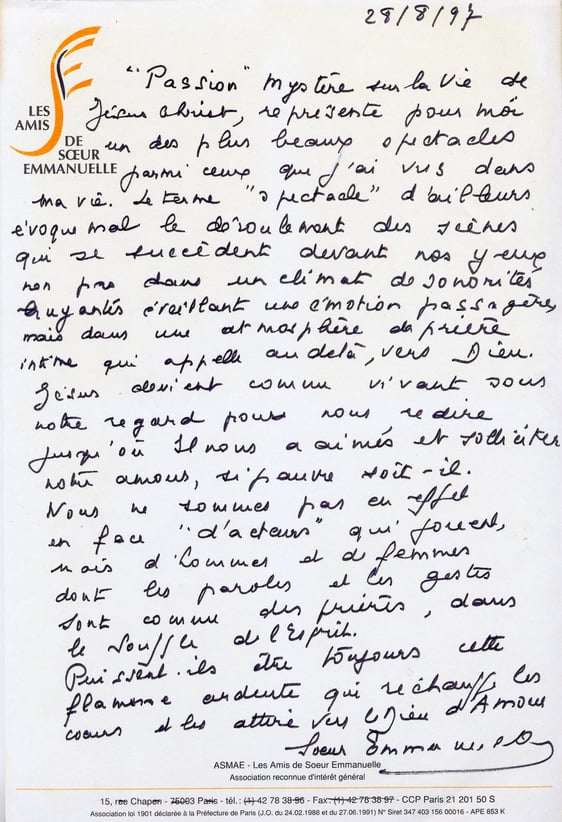 28/8/97
LES
AMIS
DE
SŒUR
EMMANUELLE
"Passion" Mystère sur la Vie de
Jésus Christ, représente pour moi
un des plus beaux spectacles
parmi ceux que j'ai vus dans
ma vie. Le terme "spectacle" d'ailleurs
évoque mal le déroulement des scènes
qui se succèdent devant nos yeux
non pas dans un climat de sonorités
bruyantes éveillant une émotion passagère,
mais dans une atmosphère de prière
intime qui appelle au delà, vers Dieu.
Jésus devient comme vivant sous
notre regard pour nous redire
jusqu'où Il nous a aimés et solliciter
notre amour, si pauvre soit-il.
Nous ne sommes pas en effet
en face "d'acteurs" qui jouent,
mais d'hommes et de femmes
dont les paroles et les gestes
sont comme des prières, dans
le souffle de l'Esprit.
Puissent-ils être toujours cette
flamme ardente qui réchauffe les
cœurs et les attire vers le Dieu d'Amour
Soeur Emmanuelle
ASMAE - Les Amis de Soeur Emmanuelle
Association reconnue d'intérêt général
15, rue Chapon - 75003 Paris - tél. : (1) 42 78 38 96 - Fax : (1) 42 78 38 97 - CCP Paris 21 201 50 S
Association loi 1901 déclarée à la Préfecture de Paris (J.O. du 24.02.1988 et du 27.06.1991) N° Siret 347 403 156 00016 - APE 853 K